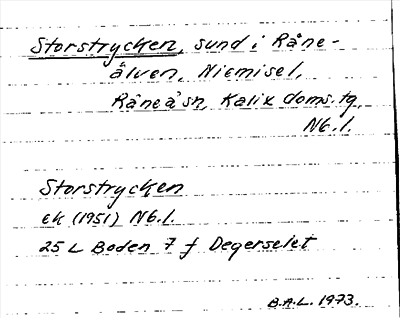 Storstrycken, sund i Råne-
älven, Niemisel,
Råneå sn, Kalix doms. tg
Nb. l.
Storstrycken
ek (1951) Nb. l.
25 L Boden 7 f Degerselet
B.A.L. 1973.